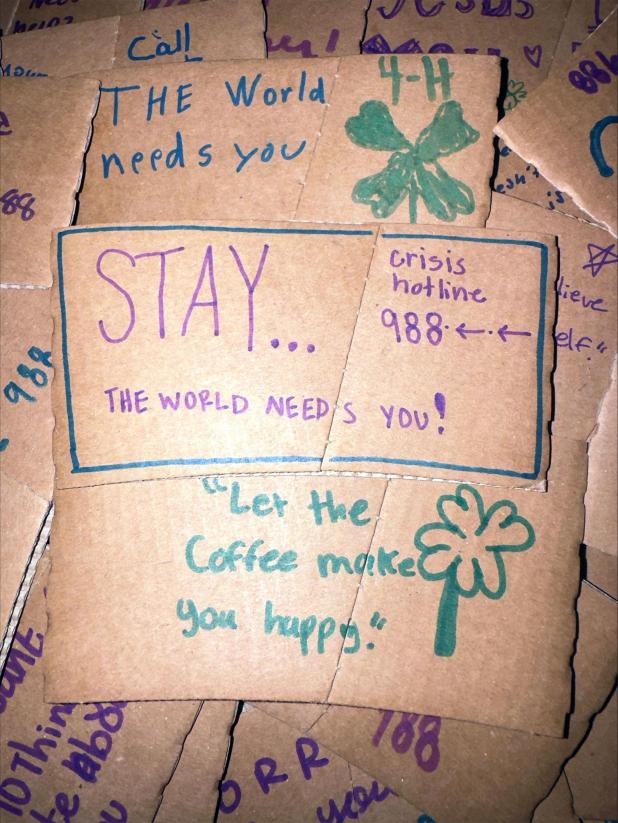 Call
THE World
needs you
4-H
STAY...
THE WORLD NEEDS YOU!
crisis
hotline
988
"Let the
Coffee make
you happy."
JESUS
88
988
lieve
elf."
is
988
ORR
you
10 Thin